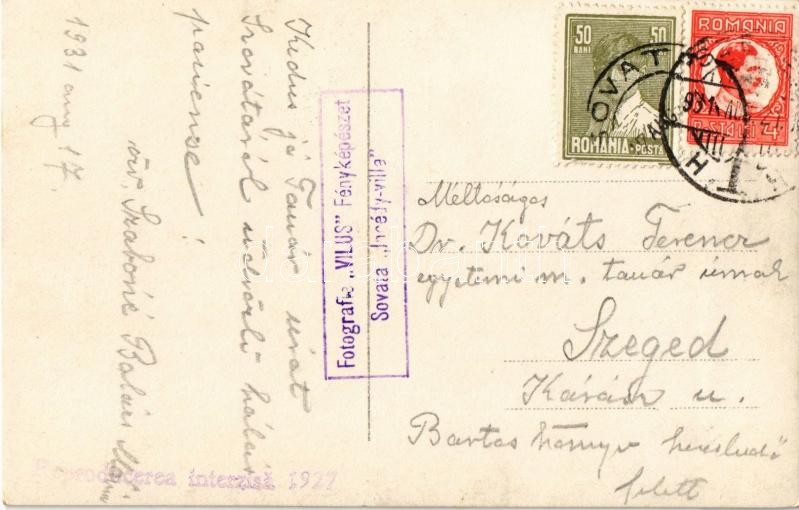 1931 aug 17.
Kedves jó Tanár urát
Szovátáról üdvözli hálás
paciense!
özv. Szabóné Balázs
Fotografie „VILUS” Fényképészet
Sovata „
Reproducerea interzisă 1927
50 50
BANI
ROMÂNIA POSTA
ROMANIA
POSTA LEI 4
SOVATA
Méltóságos
Dr. Kováts Ferencz
egyetemi m. tanár úrnak
Szeged
Kárász u.
Bartos könyv kereskedő
felett